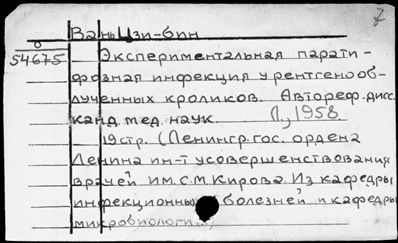 7
Вань Цзи-бин
0
54675
Экспериментальная парати-
фозная инфекция у рентгенооб-
лученных кроликов. Автореф. дисс.
канд. мед. наук. Л., 1958.
19 стр. (Ленингр. гос. ордена
Ленина ин-т усовершенствования
врачей им. С. М. Кирова. Из кафедры
инфекционных болезней и кафедры
микробиологии)